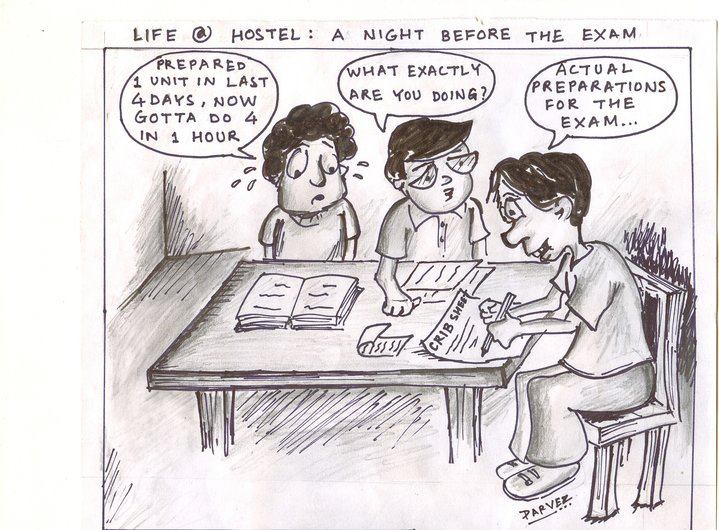 LIFE @ HOSTEL: A NIGHT BEFORE THE EXAM
PREPARED
1 UNIT IN LAST
4 DAYS, NOW
GOTTA DO 4
IN 1 HOUR
WHAT EXACTLY
ARE YOU DOING?
ACTUAL
PREPARATIONS
FOR THE
EXAM...
CRIB SHEET
PARVEZ